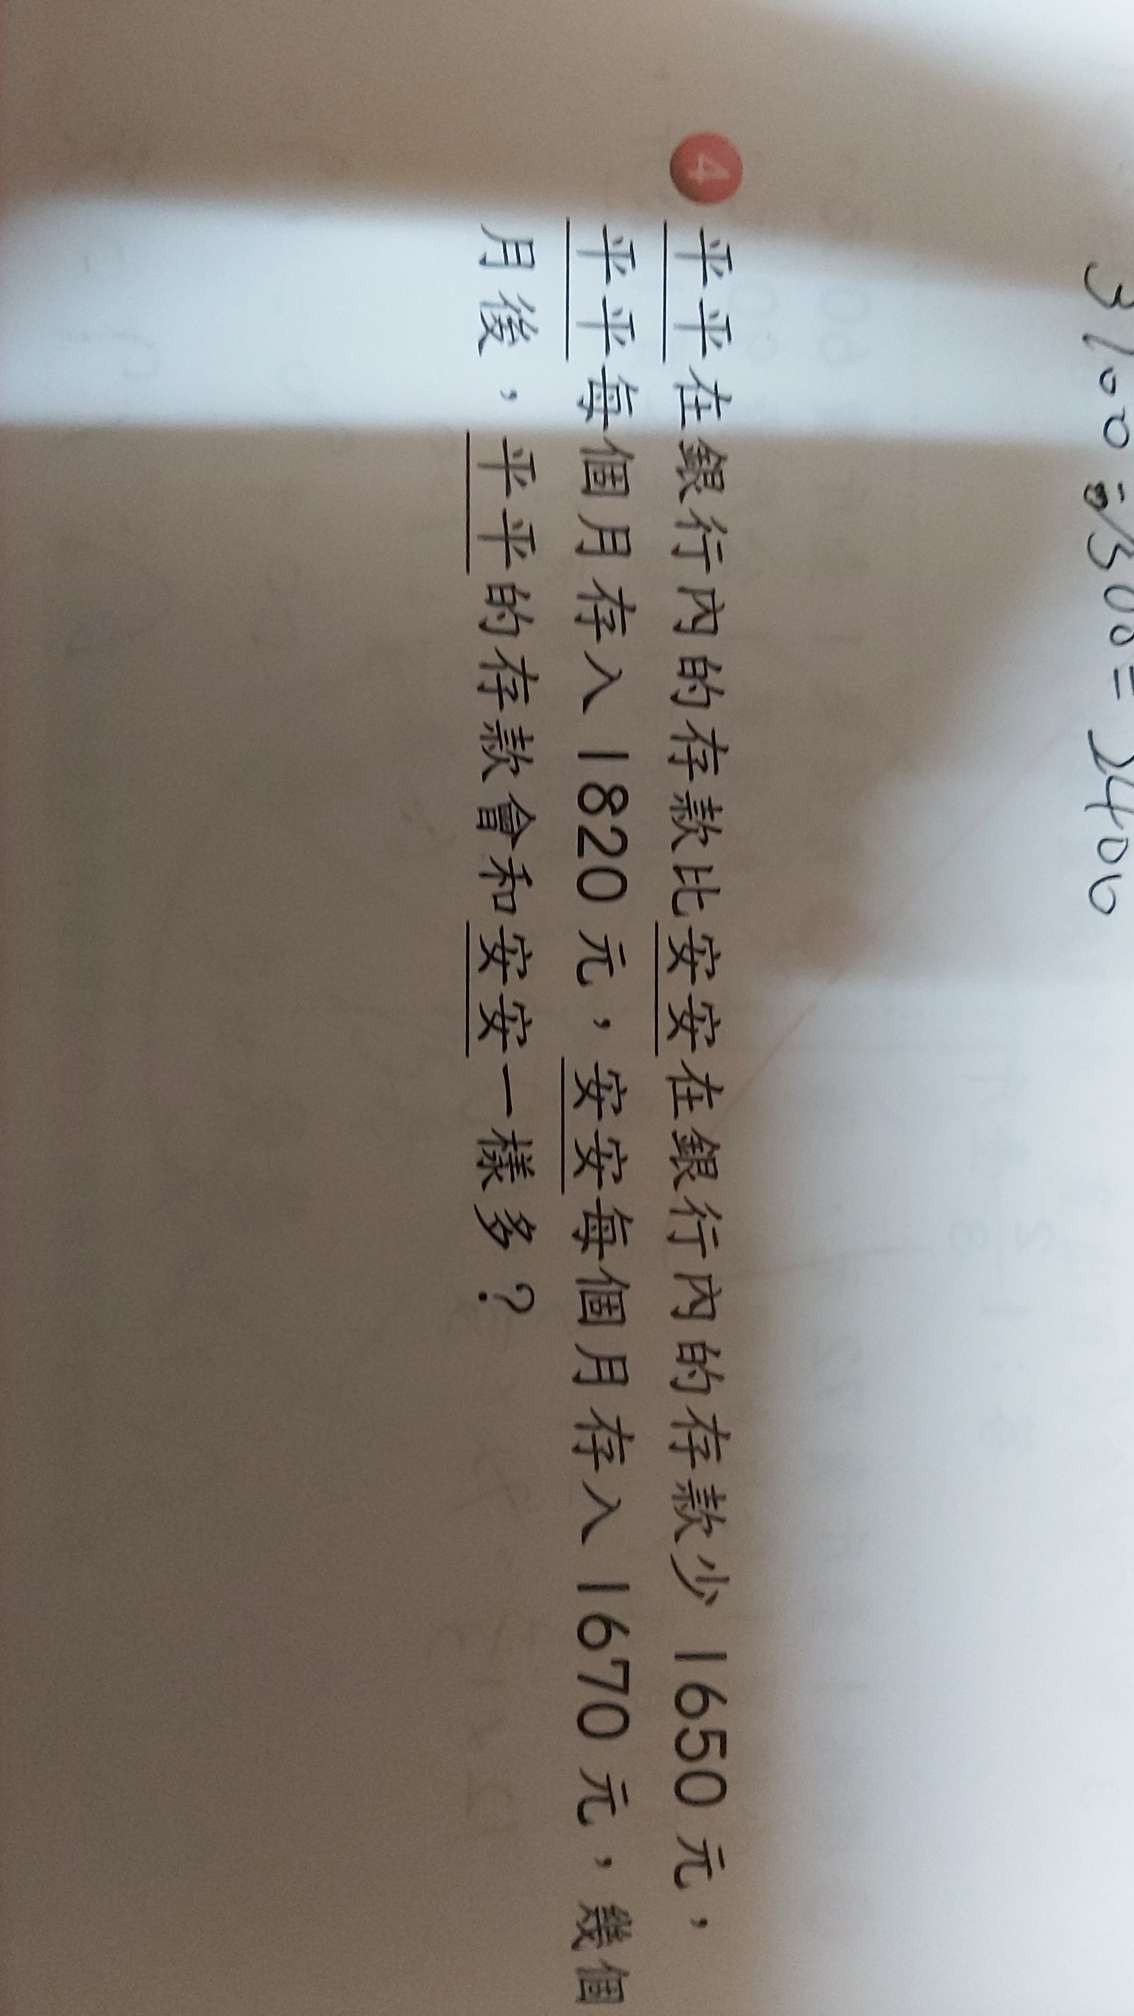 3100-300=2400
4 平平在銀行內的存款比安安在銀行內的存款少1650元，
平平每個月存入1820元，安安每個月存入1670元，幾個
月後，平平的存款會和安安一樣多？